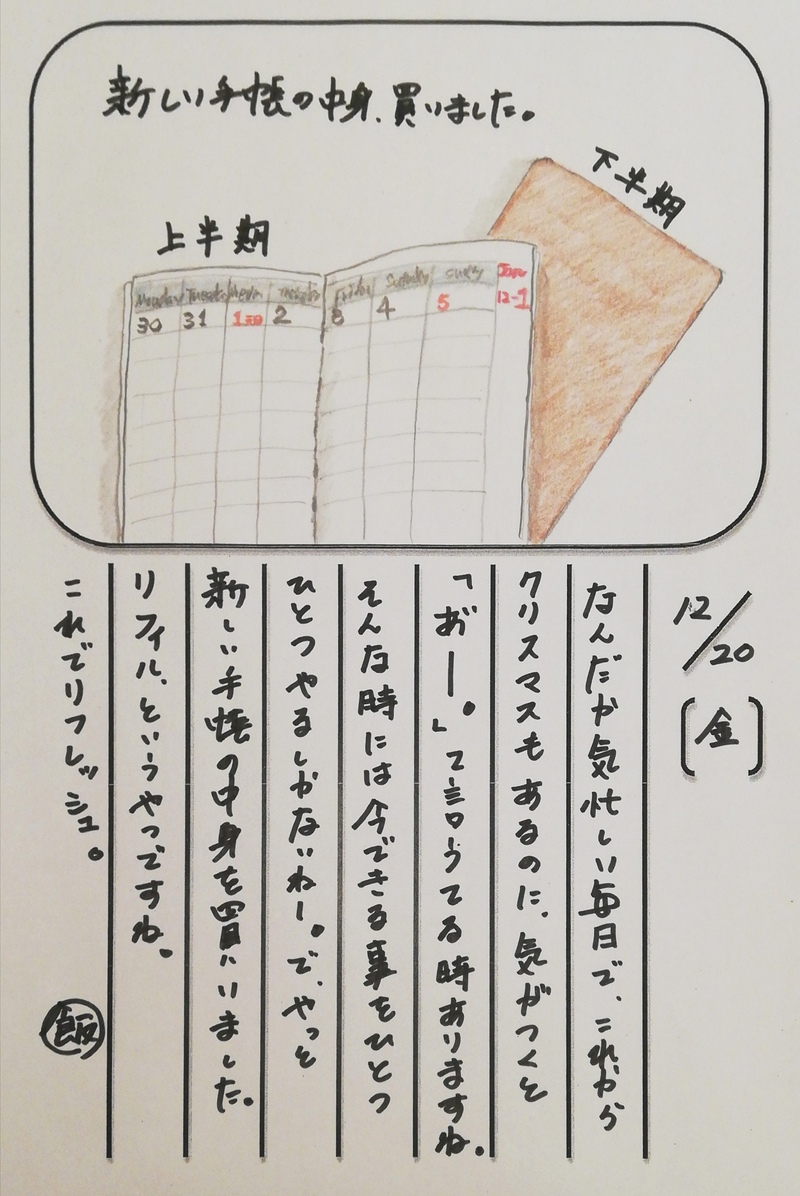 新しい手帳の中身、買いました。
下半期
上半期
30 31 1 2 3 4 5
12-1
12/20
(金)
なんだか気忙しい毎日で、これから
クリスマスもあるのに、気がつくと
「あ゛ー。」て言うてる時ありますね。
そんな時には今できる事をひとつ
ひとつやるしかないねー。で、やっと
新しい手帳の中身を買いました。
リフィル、というやつですね。
これでリフレッシュ。
飯